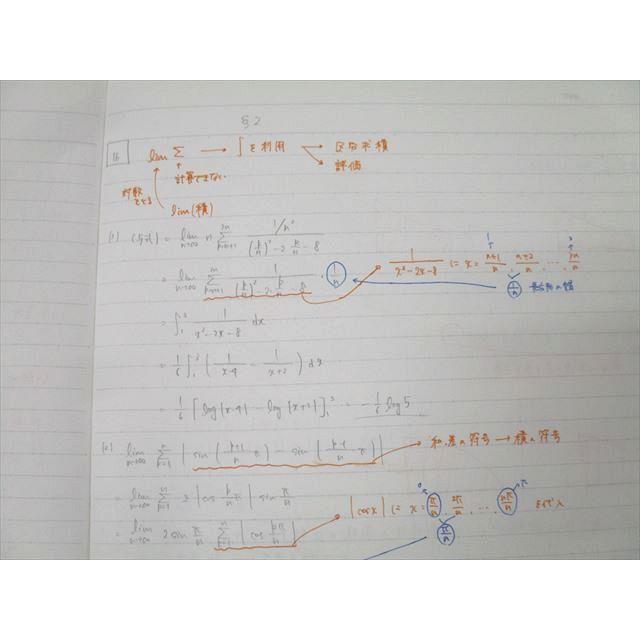 §2
16 lim Σ → ∫を利用 → 区分求積
→ 評価
計算できない
対数とる
lim(積)
(1) (与式) = lim n→∞ n Σ k=n+1 3n (1/n²)/((k/n)² - 2 k/n - 8)
= lim n→∞ Σ k=n+1 3n 1/((k/n)² - 2 k/n - 8) · 1/n
1/(x²-2x-8) に x = (n+1)/n, (n+2)/n, ..., 3n/n
1/n 長方形の幅
= ∫₁³ 1/(x²-2x-8) dx
= 1/6 ∫₁³ (1/(x-4) - 1/(x+2)) dx
= 1/6 [log|x-4| - log|x+2|]₁³ = -1/6 log5
(2) lim n→∞ Σ k=1 n | sin((k+1)/n π) - sin((k-1)/n π) |
和、差の符号 → 積の符号
= lim n→∞ Σ k=1 n 2 |cos k/n π| sin π/n
= lim n→∞ 2 sin π/n Σ k=1 n |cos kπ/n|
|cosx| に x = π/n, 2π/n, ..., nπ/n を代入
π/n